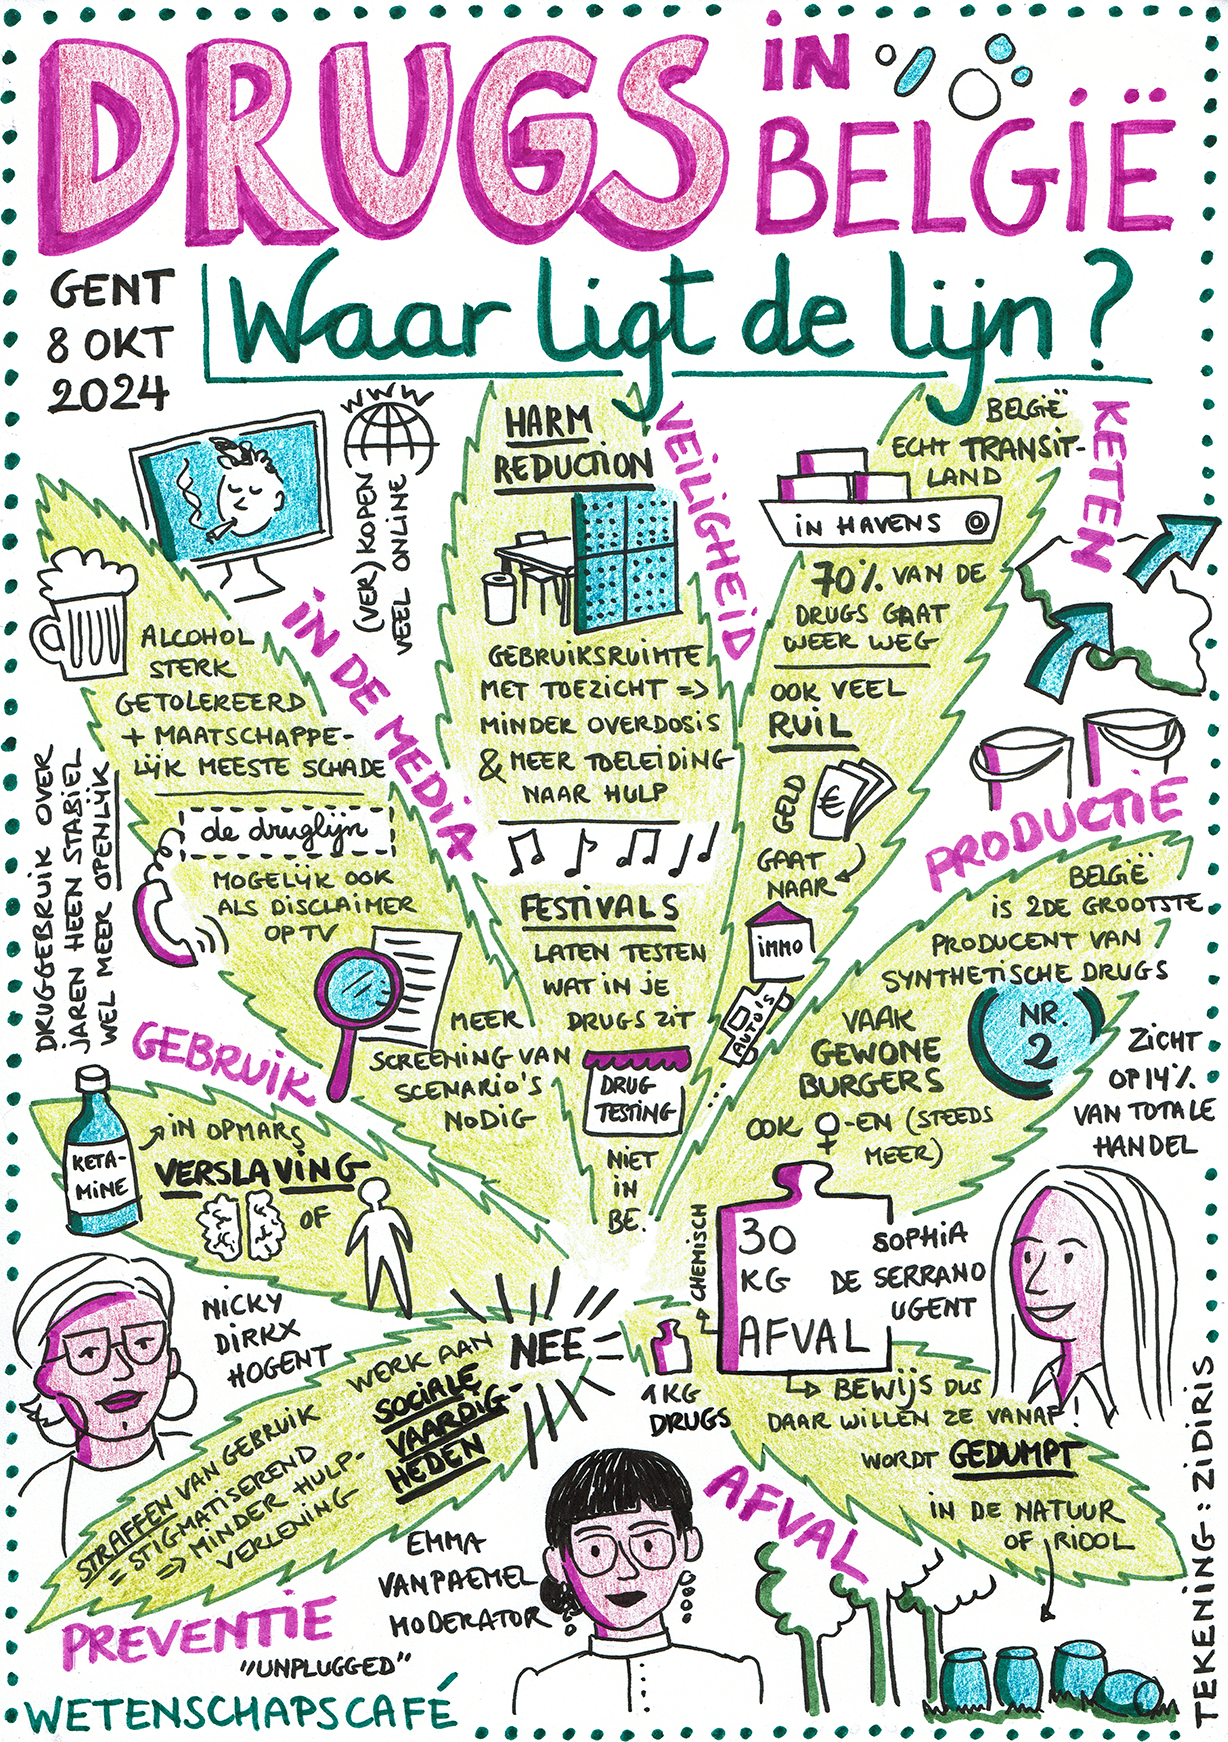 DRUGS
IN
BELGIË
Waar ligt de lijn?
GENT
8 OKT
2024
WWW
(VER)KOPEN
VEEL ONLINE
IN DE MEDIA
ALCOHOL
STERK
GETOLEREERD
+ MAATSCHAPPE-
LIJK MEESTE SCHADE
de druglijn
MOGELIJK OOK
ALS DISCLAIMER
OP TV
MEER
SCREENING VAN
SCENARIO'S
NODIG
HARM
REDUCTION
VEILIGHEID
GEBRUIKSRUIMTE
MET TOEZICHT =>
MINDER OVERDOSIS
& MEER TOELEIDING
NAAR HULP
FESTIVALS
LATEN TESTEN
WAT IN JE
DRUGS ZIT
DRUG
TESTING
NIET
IN
BE.
KETEN
BELGIË
ECHT TRANSIT-
LAND
IN HAVENS
70% VAN DE
DRUGS GAAT
WEER WEG
OOK VEEL
RUIL
GELD
€
GAAT
NAAR
IMMO
AUTO'S
...
PRODUCTIE
BELGIË
IS 2DE GROOTSTE
PRODUCENT VAN
SYNTHETISCHE DRUGS
NR.
2
VAAK
GEWONE
BURGERS
OOK ♀-EN (STEEDS
MEER)
ZICHT
OP 14%
VAN TOTALE
HANDEL
DRUGGEBRUIK OVER
JAREN HEEN STABIEL
WEL MEER OPENLIJK
GEBRUIK
KETA-
MINE
IN OPMARS
VERSLAVING
OF
NICKY
DIRKX
HOGENT
NEE
WERK AAN
SOCIALE
VAARDIG-
HEDEN
STRAFFEN VAN GEBRUIK
= STIGMATISEREND
=> MINDER HULP-
VERLENING
PREVENTIE
CHEMISCH
30
KG
AFVAL
1 KG
DRUGS
SOPHIA
DE SERRANO
UGENT
BEWIJS DUS
DAAR WILLEN ZE VANAF!
WORDT GEDUMPT
IN DE NATUUR
OF RIOOL
AFVAL
EMMA
VANPAEMEL
MODERATOR
"UNPLUGGED"
WETENSCHAPSCAFÉ
TEKENING: ZIDIRIS